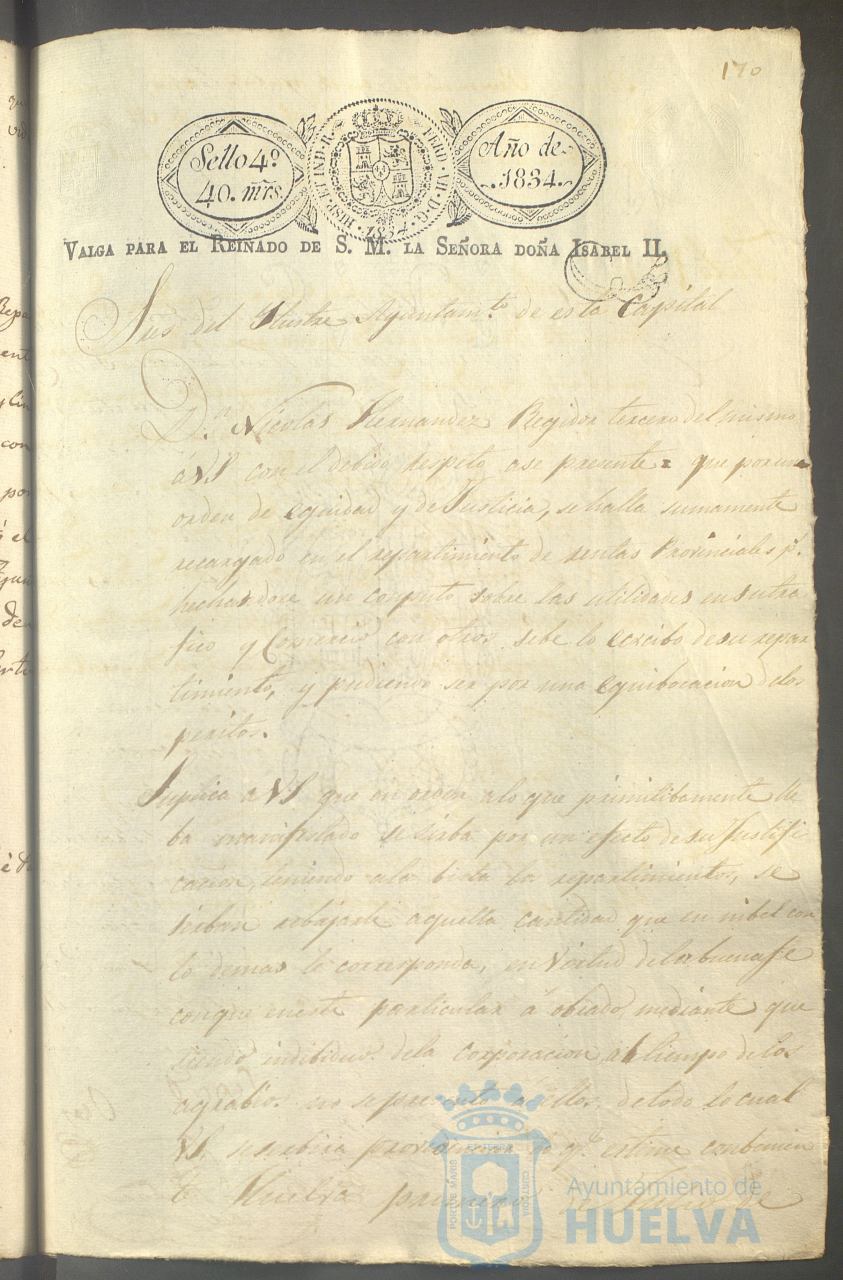 170
Sello 4º
40. mrs.
HISP. ET IND. R. FERD. VII. D. G. 1834
Año de
1834.
VALGA PARA EL REINADO DE S. M. LA SEÑORA DOÑA ISABEL II.
Sres del Ilustre Ayuntamto de esta Capital
Dn Nicolas Hernandez Regidor tercero del mismo
á VS con el debido respeto ase presente = que por una
orden de equidad y de Justicia, se halla sumamente
recargado en el repartimiento de rentas Provinciales p.
hechandose un conputo sobre las utilidades en su tra
fico y Comercio con otros sebe lo ecxcibo de su repar
timiento, y pudiendo ser por una equibocacion delos
peritos.
Suplica a VS que en orden alo que primitibamente lle
ba manifestado se sirba por un efecto de su Justifi
cacion, teniendo ala bista la repartimientos, se
sirban rebajarle aquella cantidad que en nibel con
lo demas le corresponda, en virtud dela buena fe
con que en este particular á obrado, mediante que
siendo indibiduo dela corporacion al tiempo de los
agrabios no se presentó a ellos, de todo lo cual
VS se serbira probidenciar lo qe estime conbenien
te Huelva primero de
PORTUS MARIS
ET TERRAE
CUSTODIA
Ayuntamiento de
HUELVA